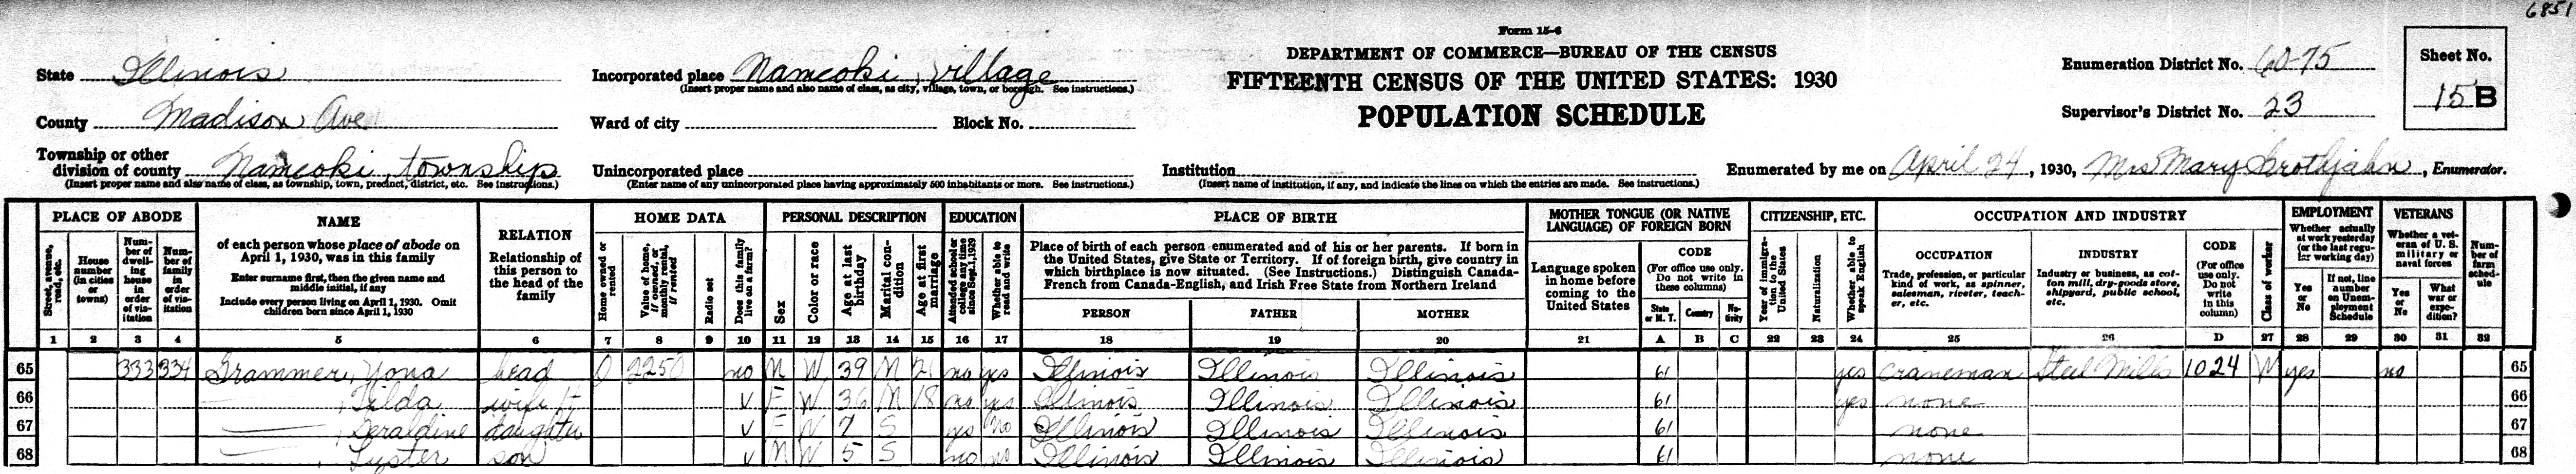 6851
Form 15-6
DEPARTMENT OF COMMERCE—BUREAU OF THE CENSUS
FIFTEENTH CENSUS OF THE UNITED STATES: 1930
POPULATION SCHEDULE
State Illinois
County Madison Ave
Township or other division of county Nameoki township
(Insert proper name and also name of class, as township, town, precinct, district, etc. See instructions.)
Incorporated place Nameoki, village
(Insert proper name and also name of class, as city, village, town, or borough. See instructions.)
Ward of city Block No.
Unincorporated place
(Enter name of any unincorporated place having approximately 500 inhabitants or more. See instructions.)
Institution
(Insert name of institution, if any, and indicate the lines on which the entries are made. See instructions.)
Enumeration District No. 60-75
Supervisor's District No. 23
Sheet No.
15 B
Enumerated by me on April 24, 1930, Mrs Mary Grothjahn, Enumerator.
PLACE OF ABODE
Street, avenue, road, etc.
House number (in cities or towns)
Number of dwelling house in order of visitation
Number of family in order of visitation
NAME
of each person whose place of abode on April 1, 1930, was in this family
Enter surname first, then the given name and middle initial, if any
Include every person living on April 1, 1930. Omit children born since April 1, 1930
RELATION
Relationship of this person to the head of the family
HOME DATA
Home owned or rented
Value of home, if owned, or monthly rental, if rented
Radio set
Does this family live on a farm?
PERSONAL DESCRIPTION
Sex
Color or race
Age at last birthday
Marital condition
Age at first marriage
EDUCATION
Attended school or college any time since Sept. 1, 1929
Whether able to read and write
PLACE OF BIRTH
Place of birth of each person enumerated and of his or her parents. If born in the United States, give State or Territory. If of foreign birth, give country in which birthplace is now situated. (See Instructions.) Distinguish Canada-French from Canada-English, and Irish Free State from Northern Ireland
PERSON FATHER MOTHER
MOTHER TONGUE (OR NATIVE LANGUAGE) OF FOREIGN BORN
Language spoken in home before coming to the United States
CODE
(For office use only. Do not write in these columns)
State or M. T. Country Nativity
CITIZENSHIP, ETC.
Year of immigration to the United States
Naturalization
Whether able to speak English
OCCUPATION AND INDUSTRY
OCCUPATION
Trade, profession, or particular kind of work, as spinner, salesman, riveter, teacher, etc.
INDUSTRY
Industry or business, as cotton mill, dry-goods store, shipyard, public school, etc.
CODE
(For office use only. Do not write in this column)
Class of worker
EMPLOYMENT
Whether actually at work yesterday (or the last regular working day)
Yes or No
If not, line number on Unemployment Schedule
VETERANS
Whether a veteran of U. S. military or naval forces
Yes or No
What war or expedition?
Number of farm schedule
1 2 3 4 5 6 7 8 9 10 11 12 13 14 15 16 17 18 19 20 21 A B C 22 23 24 25 26 D 27 28 29 30 31 32
65 333 334 Grammer, Yona head O 2250 no M W 39 M 21 no yes Illinois Illinois Illinois 61 yes craneman Steel Mills 1024 W yes no 65
66 , Tilda wife H v F W 36 M 18 no yes Illinois Illinois Illinois 61 yes none 66
67 , Geraldine daughter v F W 7 S yes no Illinois Illinois Illinois 61 none 67
68 , Lyster son v M W 5 S no no Illinois Illinois Illinois 61 none 68